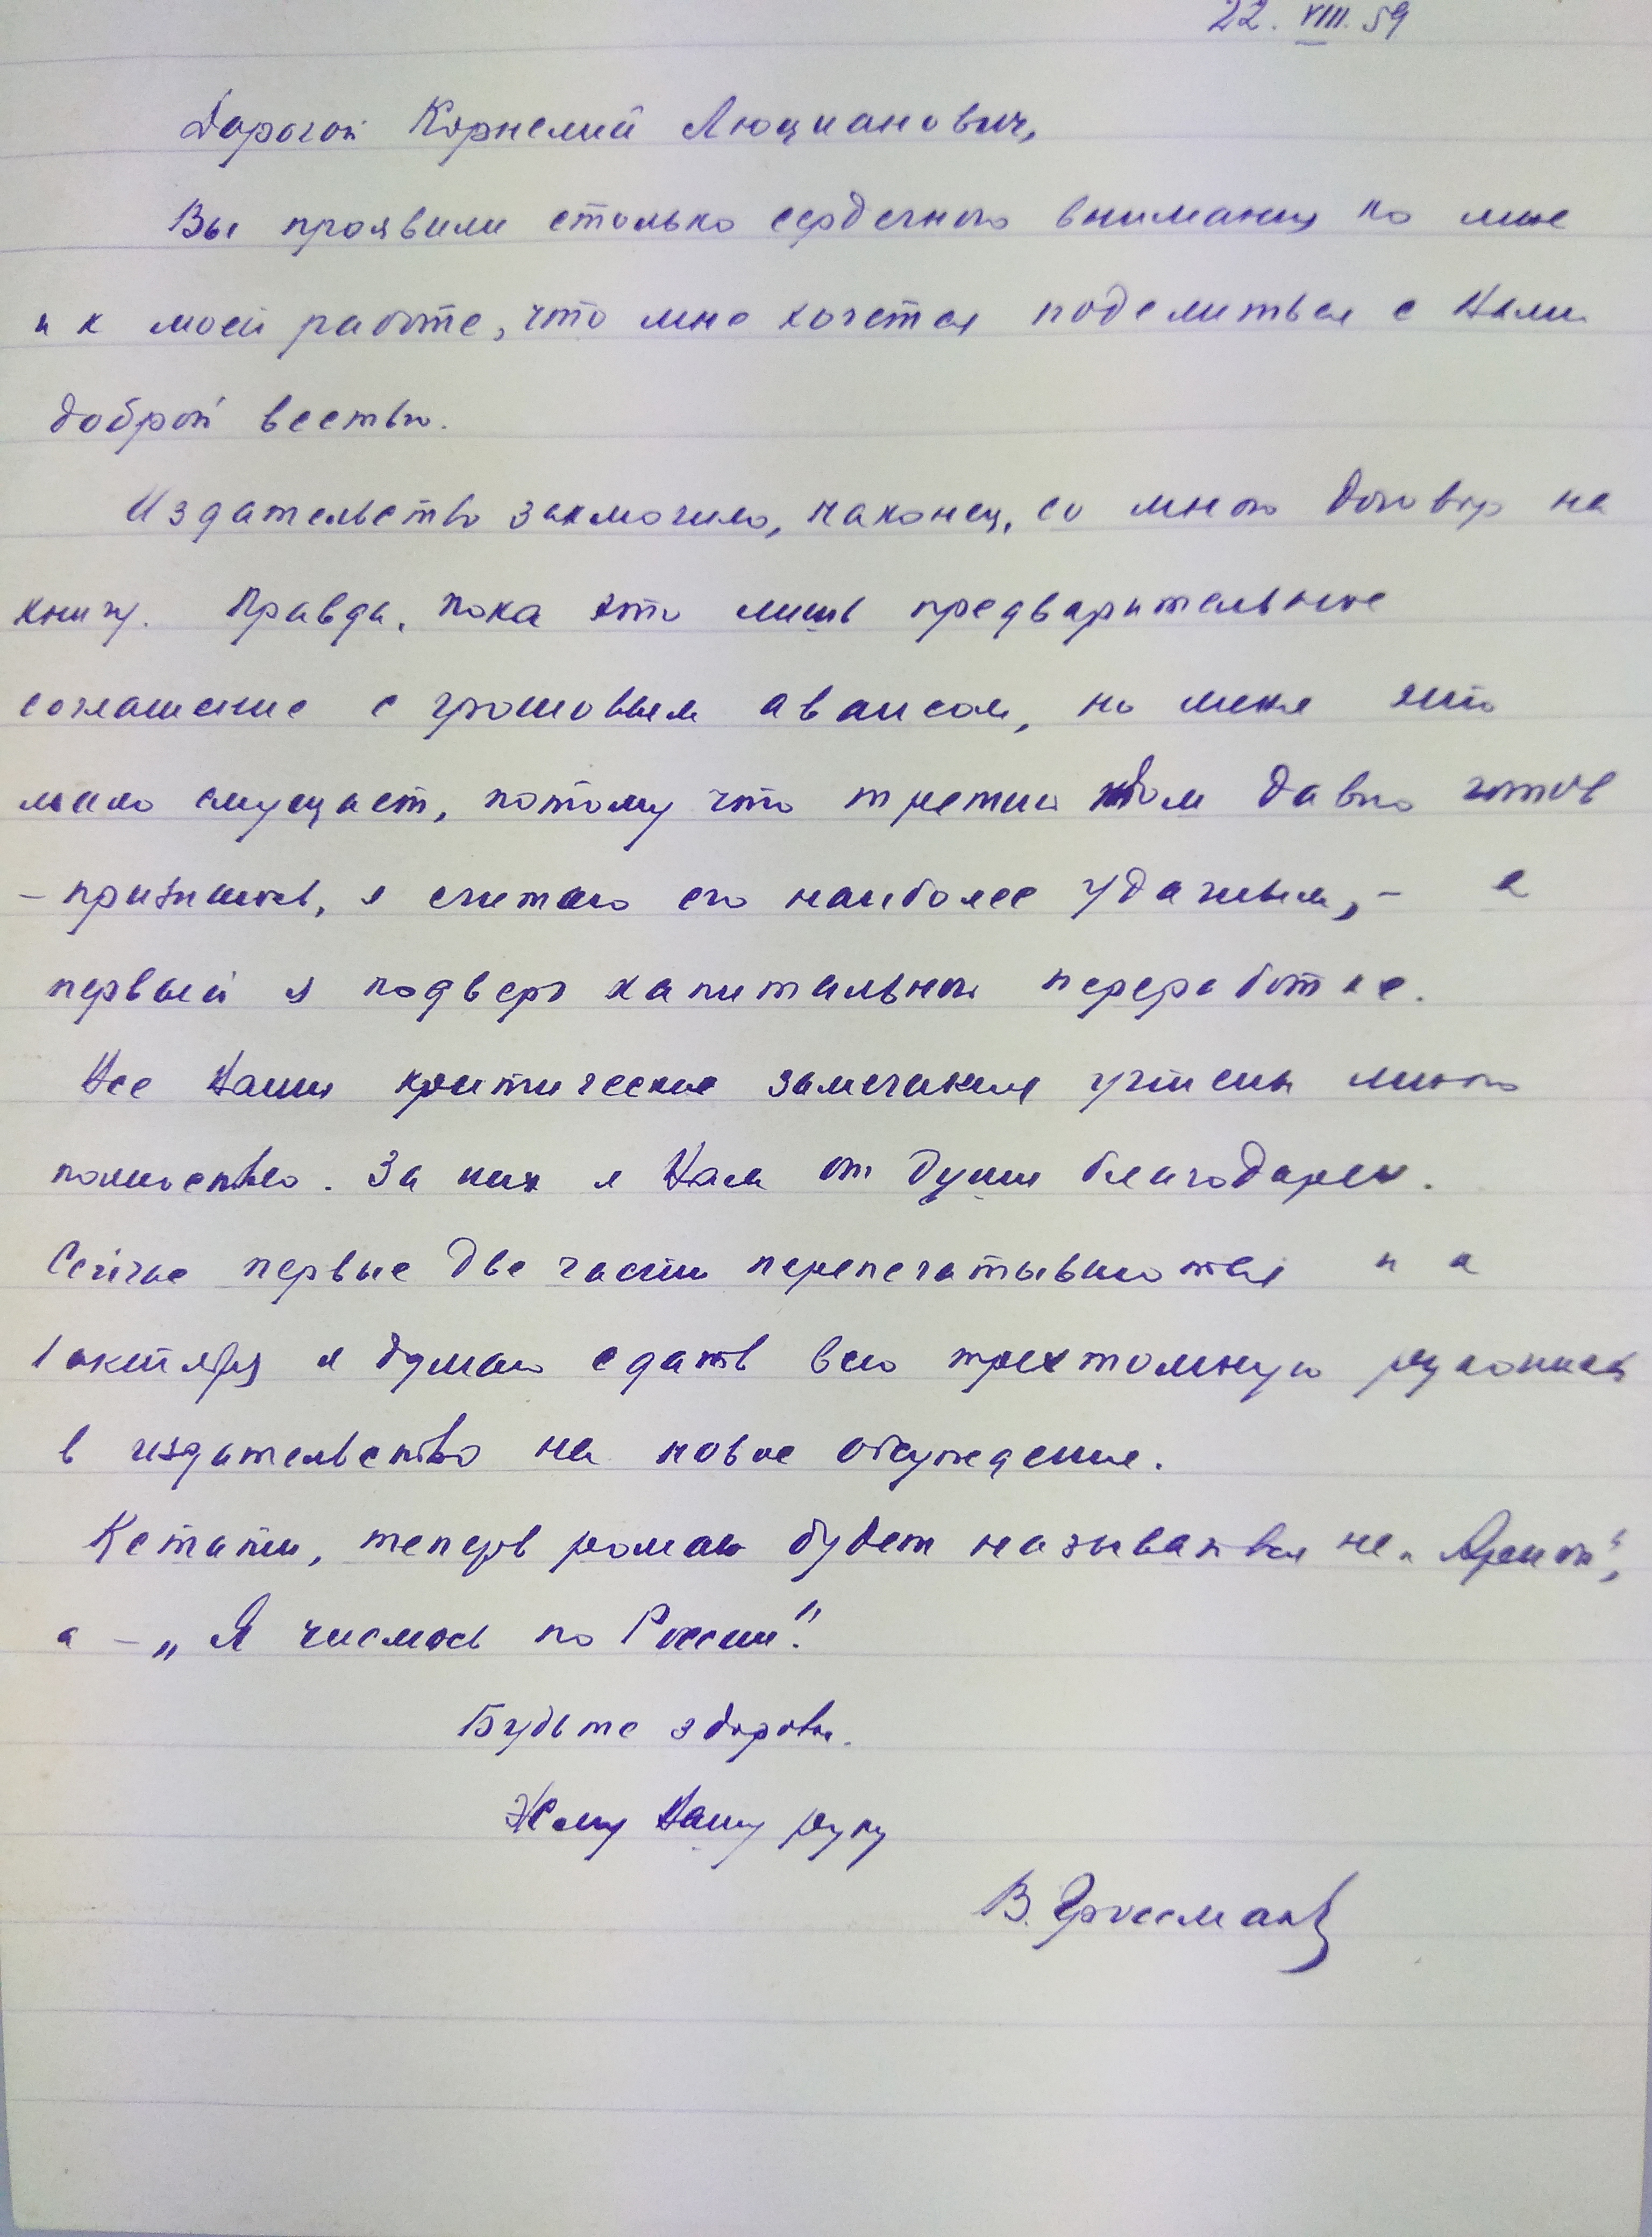 22. VIII. 59
Дорогой Корнелий Люцианович,
Вы проявили столько сердечного внимания ко мне
и к моей работе, что мне хочется поделиться с Вами
доброй вестью.
Издательство заключило, наконец, со мною договор на
книгу. Правда, пока это лишь предварительное
соглашение с грошовым авансом, но меня это
мало смущает, потому что третий том давно готов
– признаюсь, я считаю его наиболее удачным, – а
первый я подверг капитальной переработке.
Все Ваши критические замечания учтены мною
полностью. За них я Вам от души благодарен.
Сейчас первые две части перепечатываются и к
1 октября я думаю сдать всю трехтомную рукопись
в издательство на новое обсуждение.
Кстати, теперь роман будет называться не „Ариои",
а – „Я числюсь по России".
Будьте здоровы.
Жму Вашу руку
В. Гроссман